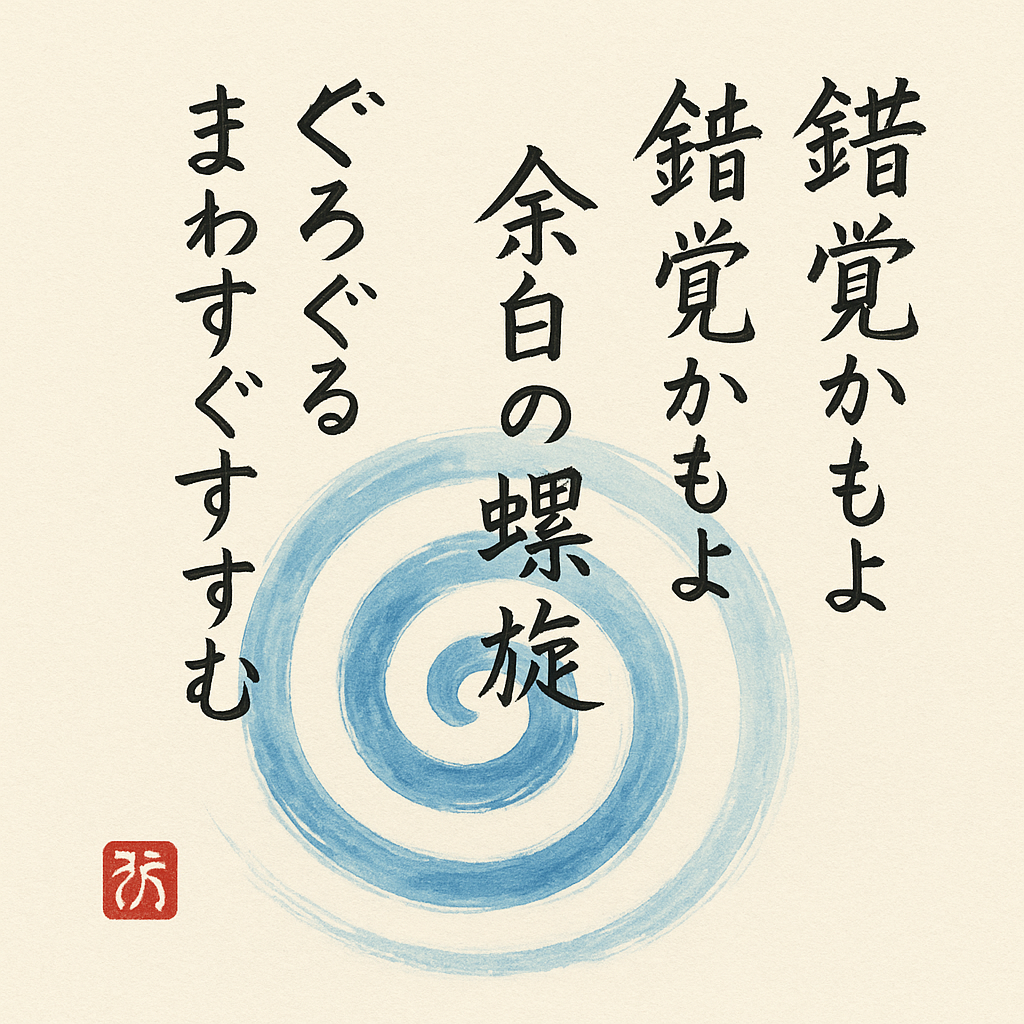 錯覚かもよ
錯覚かもよ
余白の螺旋
ぐろぐる
まわすぐすすむ